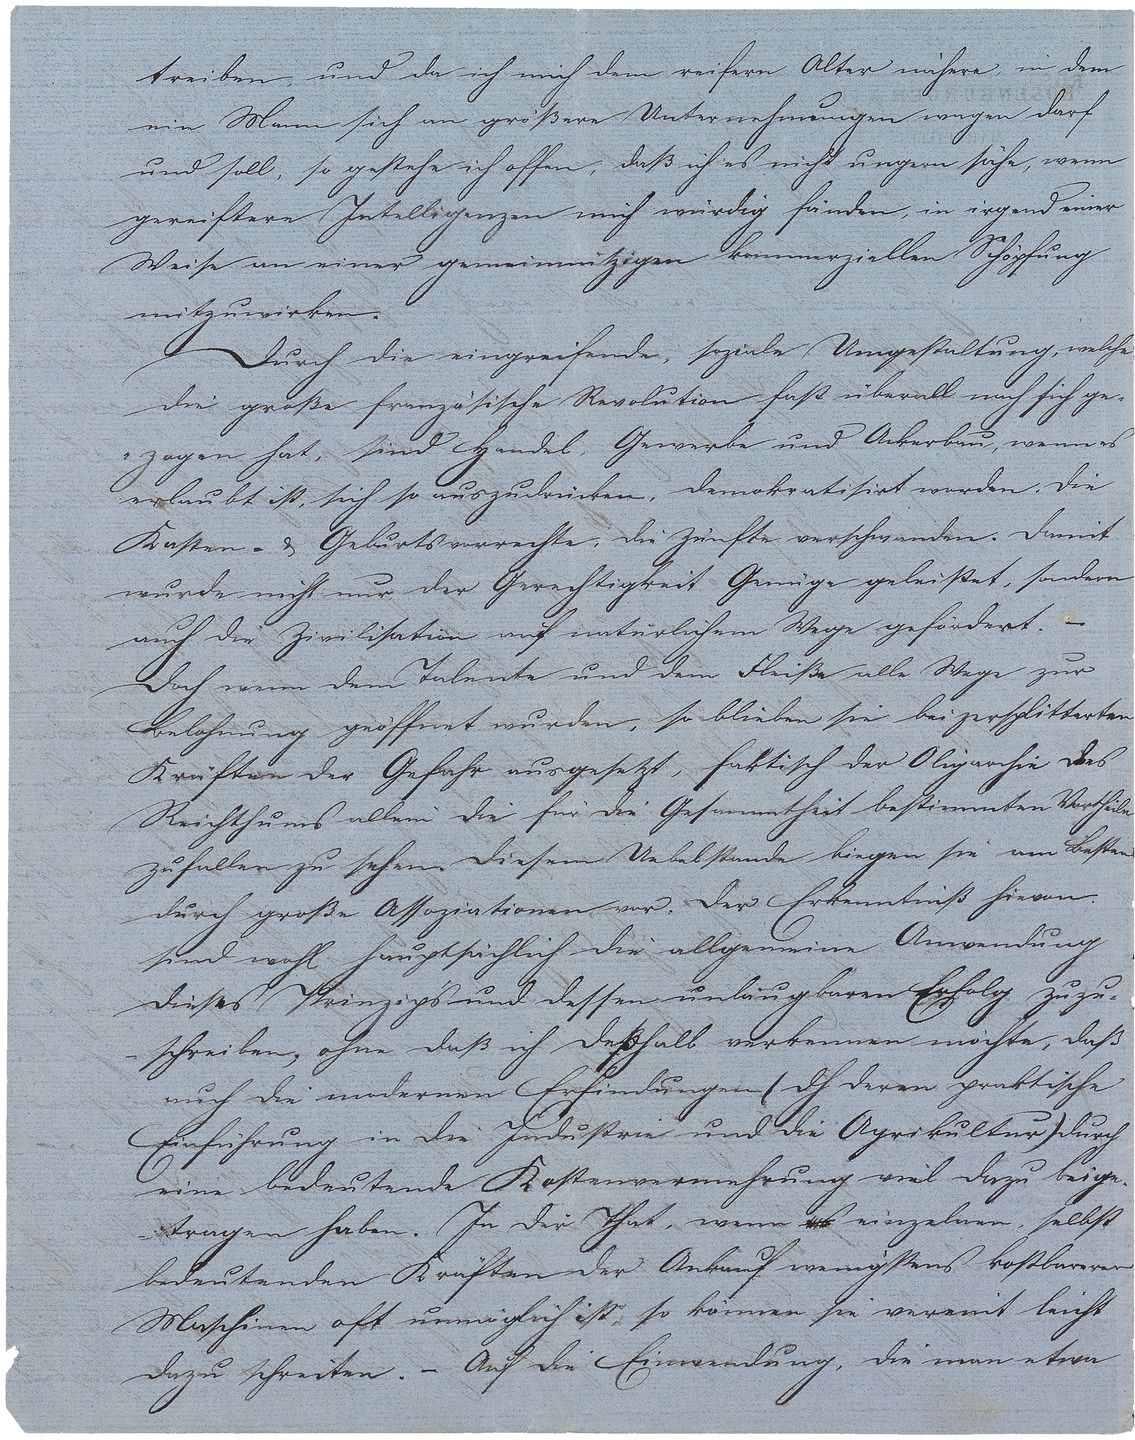 treiben, und da ich mich dem reifern Alter nähere, in dem
ein Mann sich an größere Unternehmungen wagen darf
und soll, so gestehe ich offen, daß ich es nicht ungern sähe, wenn
gereiftere Intelligenzen mich würdig fänden, in irgend einer
Weise an einer gemeinnützigen kommerziellen Schöpfung
mitzuwirken.
Durch die eingreifende, soziale Umgestaltung, welche
die große französische Revolution fast überall nach sich ge-
zogen hat, sind Handel, Gewerbe und Ackerbau, wenn es
erlaubt ist, sich so auszudrücken, demokratisirt worden. Die
Kasten- & Geburtsvorrechte, die Zünfte verschwanden. Damit
wurde nicht nur der Gerechtigkeit Genüge geleistet, sondern
auch die Zivilisation auf natürlichem Wege gefördert. –
Doch wenn dem Talente und dem Fleiße alle Wege zur
Belohnung geöffnet wurden, so blieben sie bei zersplitterten
Kräften der Gefahr ausgesetzt, faktisch der Oligarchie des
Reichthums allein die für die Gesammtheit bestimmten Vortheile
zufallen zu sehen. Diesem Uebelstande biegen sie am Besten
durch große Assoziationen vor. Der Erkenntniß hievon
sind wohl hauptsächlich die allgemeine Anwendung
dieses Prinzips und dessen unläugbaren Erfolg zuzu-
schreiben, ohne daß ich deßhalb verkennen möchte, daß
auch die modernen Erfindungen (dh. deren praktische
Einführung in die Industrie und die Agrikultur) durch
eine bedeutende Kostenvermehrung viel dazu beige-
tragen haben. In der That, wenn es einzelnen, selbst
bedeutenden Kräften der Ankauf wenigstens kostbarerer
Maschinen oft unmöglich ist, so können sie vereint leicht
dazu schreiten. – Auf die Einwendung, die man etwa